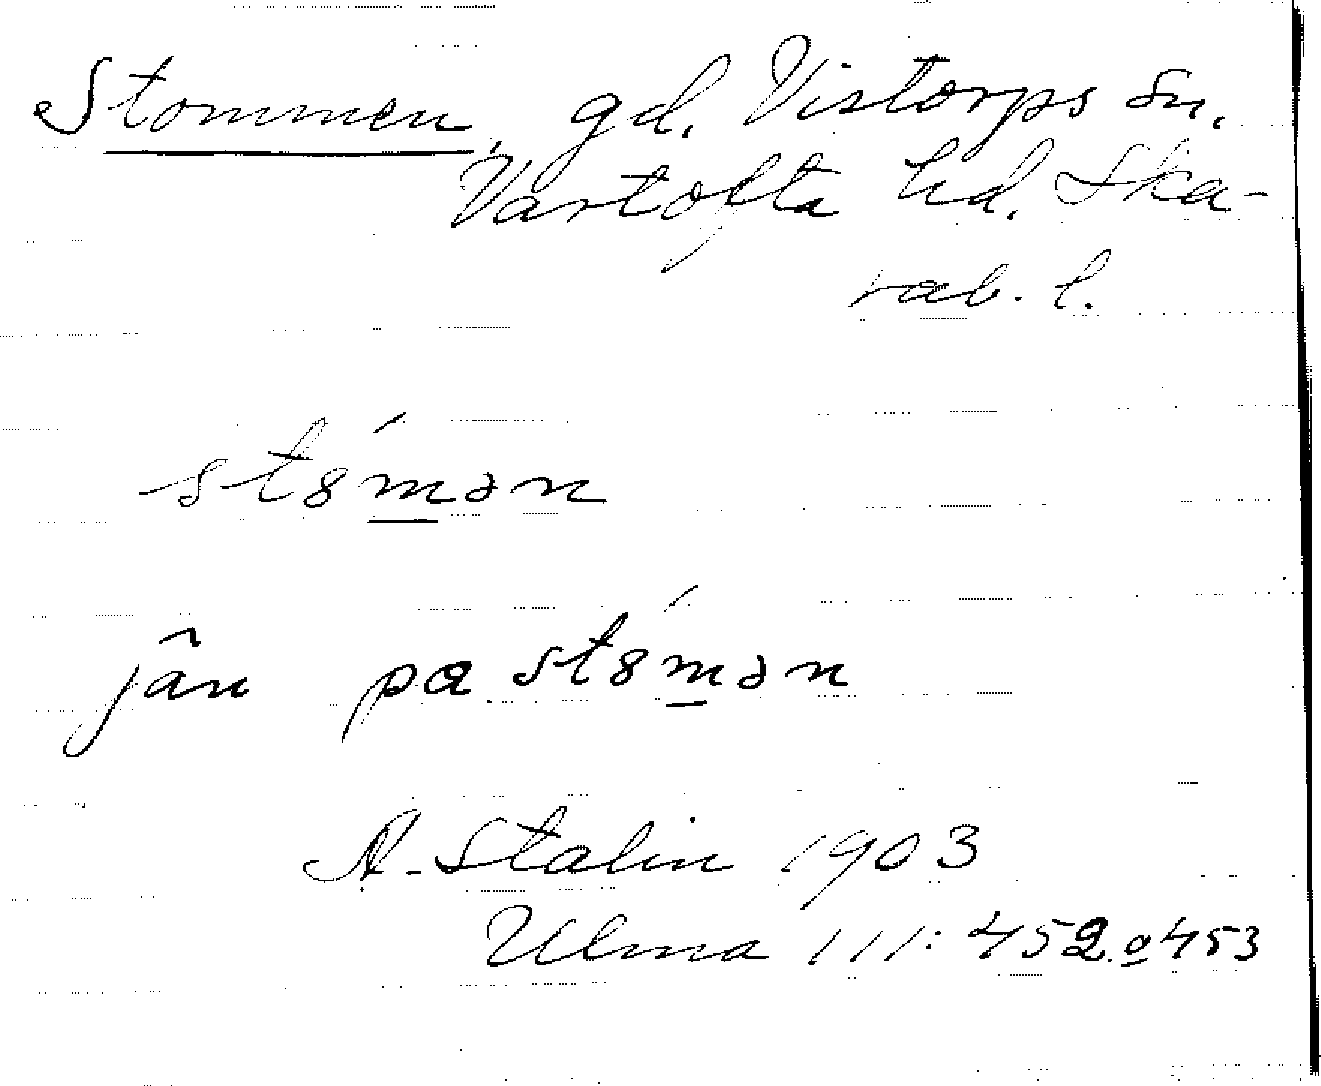 Stommen, gd. Vistorps sn.
Vartofta hd. Ska-
rab. l.
st8́mən
jân pa st8́mən
A. Stalin 1903
Ulma 111: 452 o 453